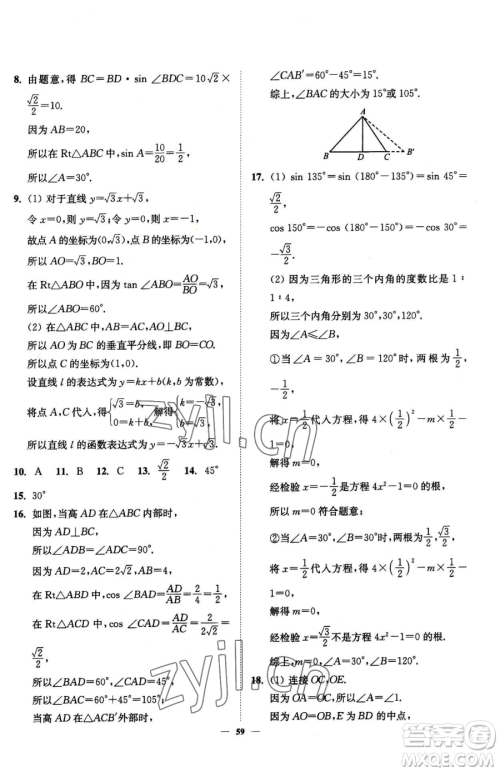 8. 由题意,得 BC=BD·sin∠BDC=10√2×
√2/2=10.
因为 AB=20,
所以在 Rt△ABC 中,sin A=10/20=1/2,
所以∠A=30°.
9. (1) 对于直线 y=√3x+√3,
令 x=0,则 y=√3,令 y=0,则 x=-1,
故点 A 的坐标为(0,√3),点 B 的坐标为(-1,0),
所以 AO=√3,BO=1.
在 Rt△ABO 中,因为 tan∠ABO=AO/BO=√3,
所以∠ABO=60°.
(2) 在△ABC 中,AB=AC,AO⊥BC,
所以 AO 为 BC 的垂直平分线,即 BO=CO.
所以点 C 的坐标为(1,0).
设直线 l 的表达式为 y=kx+b(k,b 为常数),
将点 A,C 代入,得{√3=b, 0=k+b, 解得{
所以直线 l 的函数表达式为
10. A 11. B 12. C 13. √2/2 14. 45°
15. 30°
16. 如图,当高 AD 在△ABC 内部时,
因为 AD⊥BC,
所以∠ADB=∠ADC=90°.
因为 AD=2,AB=4,AC=2√2,
在 Rt△ABD 中,cos∠BAD=AD/AB=2/4=1/2,
在 Rt△ACD 中,cos∠CAD=AD/AC=2/2√2=
√2/2,
所以∠BAD=60°,∠CAD=45°,
所以∠BAC=60°+45°=105°;
当高 AD 在△ACB′外部时,
∠CAB′=60°-45°=15°.
综上,∠BAC 的大小为 15°或 105°.
A
B D C B′
17. (1) sin 135°=sin(180°-135°)=sin 45°=
√2/2,
cos 150°=-cos(180°-150°)=-cos 30°=
-√3/2.
(2) 因为三角形的三个内角的度数比是 1∶
1∶4,
所以三个内角分别为 30°,30°,120°.
因为∠A≤∠B,
①当∠A=30°,∠B=120°时,两根为1/2,
-1/2,
将 x=1/2代入方程,得 4×(1/2)²-m×1/2-
1=0,
解得 m=0,
经检验 x=-1/2是方程 4x²-1=0 的根,
所以 m=0 符合题意;
②当∠A=30°,∠B=30°时,两根为1/2,√3/2,
将 x=1/2代入方程,得 4×(1/2)²-m×1/2-
1=0,
解得 m=0,
经检验 x=√3/2不是方程 4x²-1=0 的根.
综上所述,m=0,∠A=30°,∠B=120°.
18. (1) 连接 OC,OE.
因为∠ACB=90°,
所以 AB 为⊙O 的直径.
因为 O 为 AB 的中点,
59
zyjl.cn
zyjl.cn
答案圈
MXQE.COM